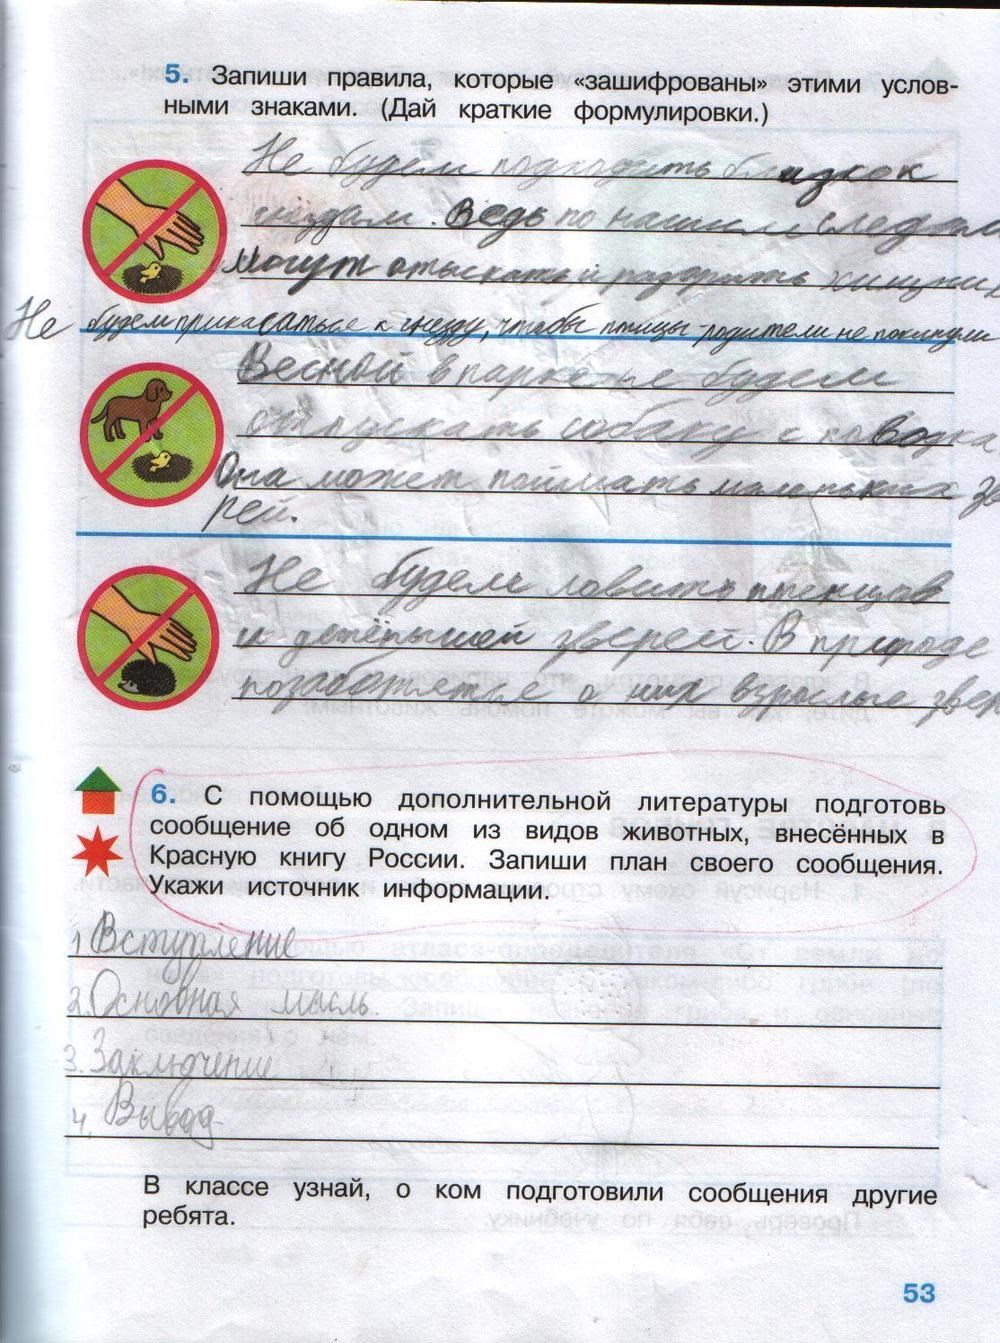 5. Запиши правила, которые «зашифрованы» этими услов-
ными знаками. (Дай краткие формулировки.)
Не будем подходить близко к
гнёздам. Ведь по нашим следам
Могут отыскать и разорить хищник
Не будем прикасаться к гнезду, чтобы птицы-родители не покинули
Весной в парке не будем
отпускать собаку с поводка
Она может поймать маленьких зве
рей.
Не будем ловить птенцов
и детёнышей зверей. В природе
позаботятся о них взрослые звер
6. С помощью дополнительной литературы подготовь
сообщение об одном из видов животных, внесённых в
Красную книгу России. Запиши план своего сообщения.
Укажи источник информации.
1. Вступление
2. Основная мысль
3. Заключение
4. Вывод
В классе узнай, о ком подготовили сообщения другие
ребята.
53